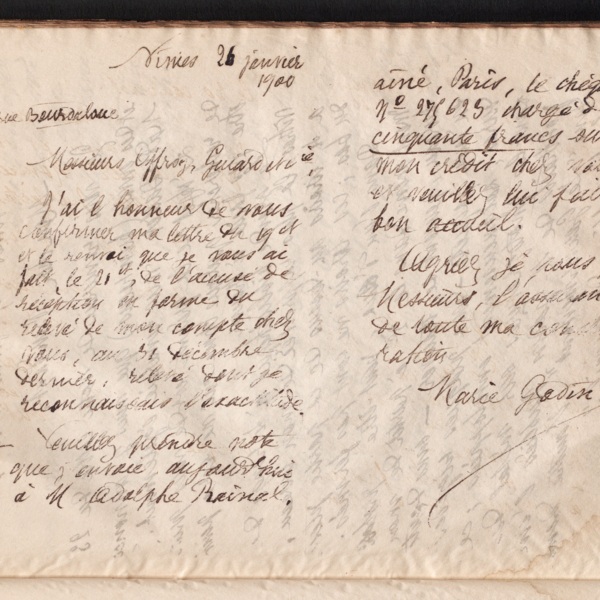 Nimes 26 janvier
1900
rue Bourdaloue
Messieurs Offroy, Guiard et Cie,
J'ai l'honneur de vous
confirmer ma lettre du 19 ct
et le renvoi que je vous ai
fait le 21 ct, de l'accusé de
réception en forme du
relevé de mon compte chez
vous, au 31 décembre
dernier, relevé dont je
reconnaissais l'exactitude.
Veuillez prendre note
que j'envoie, aujourd'hui
à M Adolphe
aîné, Paris, le chèq
No 275023 chargé d
cinquante francs
mon crédit chez vou
et veuillez lui fai
bon accueil.
Agréez je vous
Messieurs, l'assuran
de toute ma consi
ration
Marie Godin